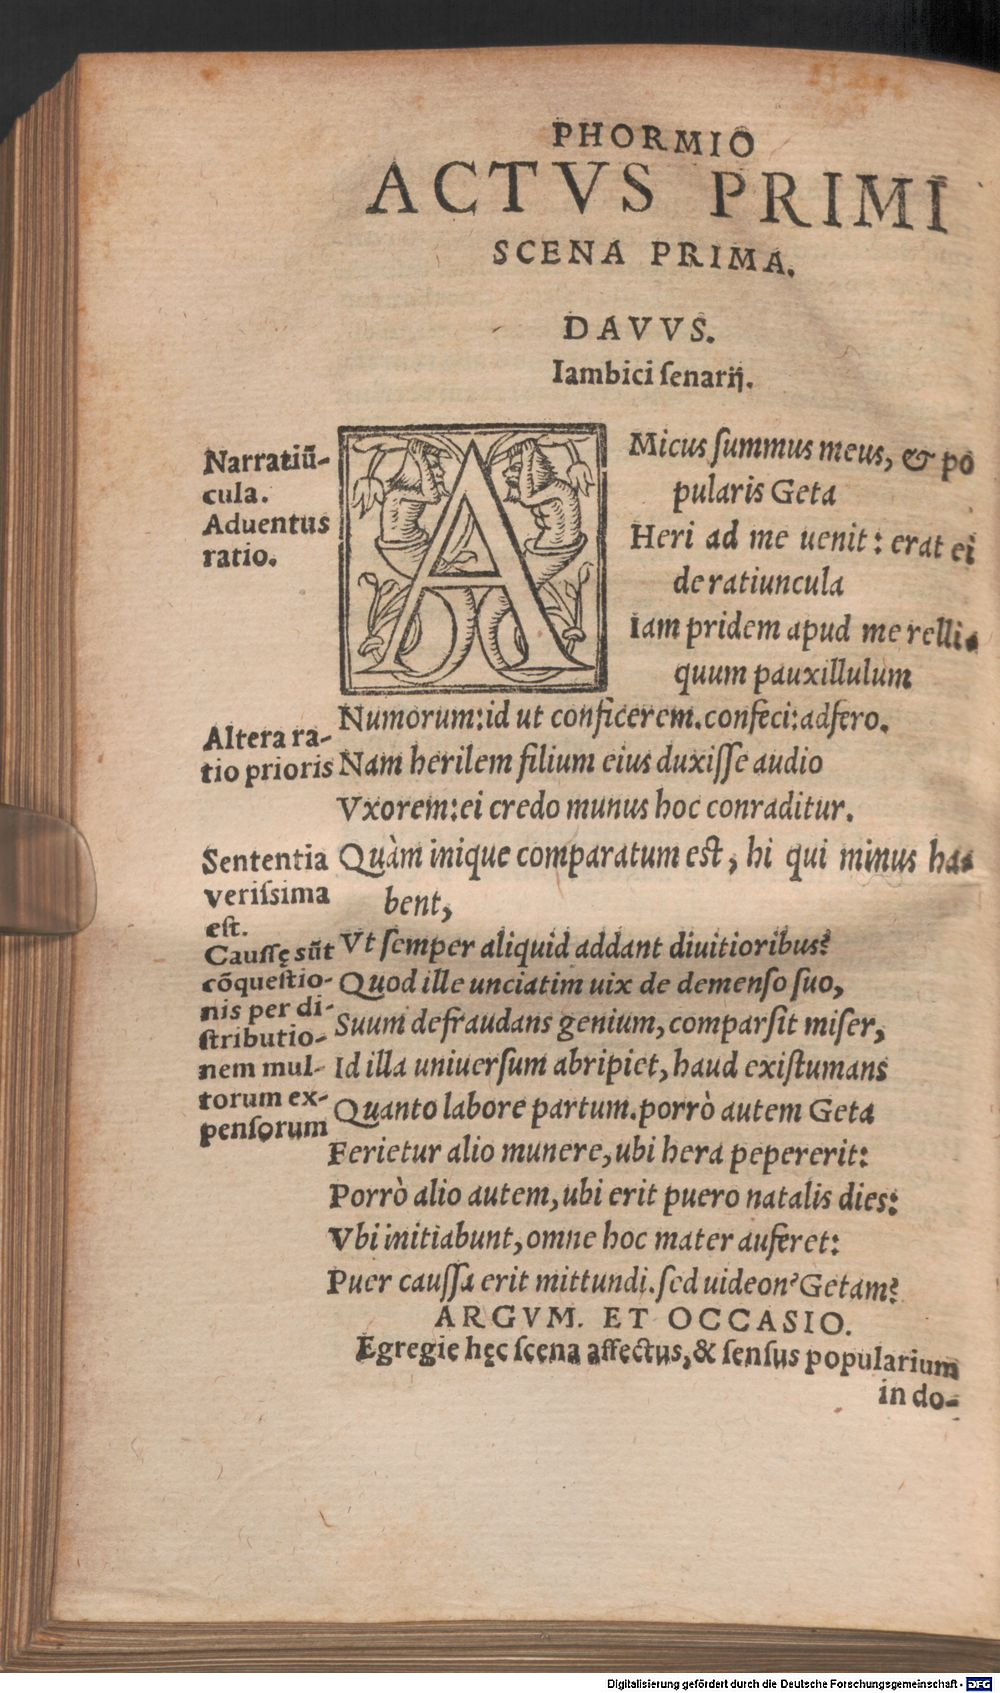 PHORMIO
ACTVS PRIMI
SCENA PRIMA.
DAVVS.
Iambici ſenarij.
Narratiũ-
cula.
Aduentus
ratio.
AMicus ſummus meus, & po
pularis Geta
Heri ad me uenit: erat ei
de ratiuncula
Iam pridem apud me relli-
quum pauxillulum
Numorum: id ut conficerem. confeci: adfero.
Altera ra-
tio prioris
Nam herilem filium eius duxiſſe audio
Vxorem: ei credo munus hoc conraditur.
Sententia
veriſsima
eſt.
Quàm inique comparatum eſt, hi qui minus ha-
bent,
Vt ſemper aliquid addant diuitioribus?
Cauſſę sũt
cõqueſtio-
nis per di-
ſtributio-
nem mul-
torum ex-
penſorum
Quod ille unciatim uix de demenſo ſuo,
Suum defraudans genium, comparſit miſer,
Id illa uniuerſum abripiet, haud exiſtumans
Quanto labore partum. porrò autem Geta
Ferietur alio munere, ubi hera pepererit:
Porrò alio autem, ubi erit puero natalis dies:
Vbi initiabunt, omne hoc mater auferet:
Puer cauſſa erit mittundi. ſed uideon' Getam?
ARGVM. ET OCCASIO.
Egregie hęc ſcęna affectus, & ſenſus popularium
in do-
Digitalisierung gefördert durch die Deutsche Forschungsgemeinschaft - DFG